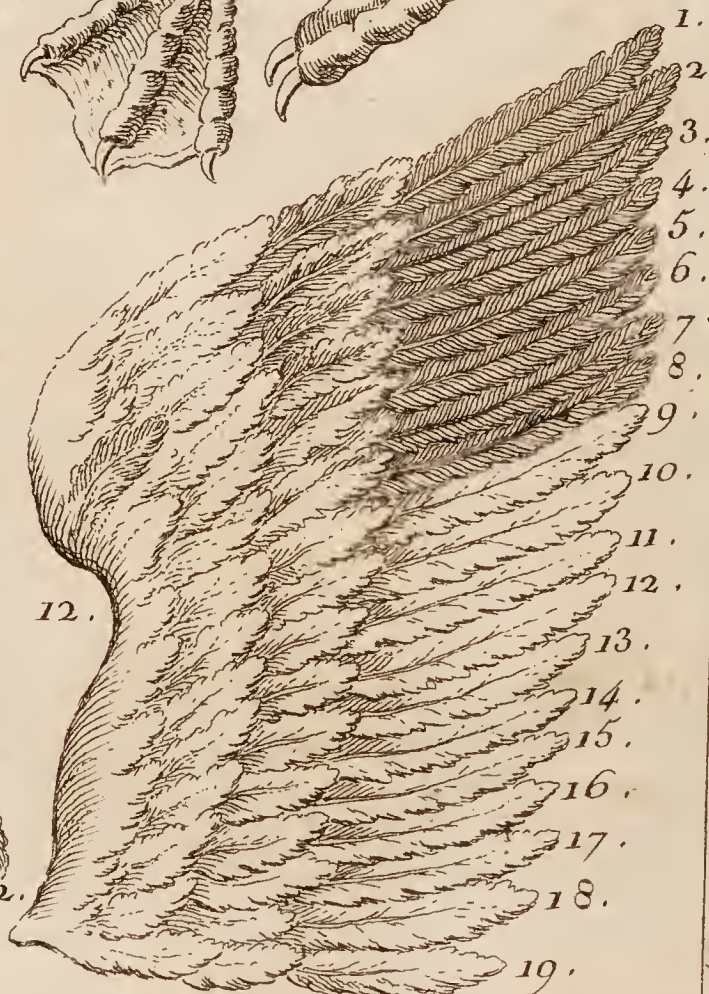 1.
2.
3.
4.
5.
6.
7.
8.
9.
10.
11.
12.
12.
13.
14.
15.
16.
17.
18.
19.